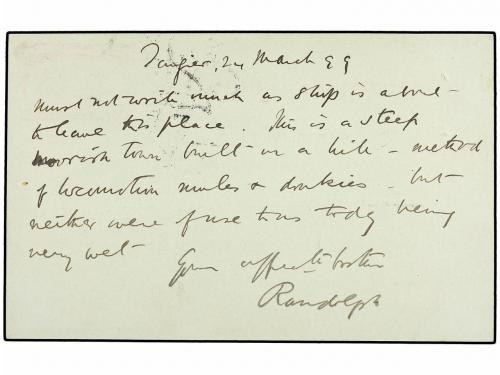 Tangier, 24 March 99
Must not write much as ship is about
to leave this place. This is a steep
moorish town built on a hill - method
of locomotion mules & donkies - but
neither were of use to us today being
very wet
Your affecte brother
Randolph